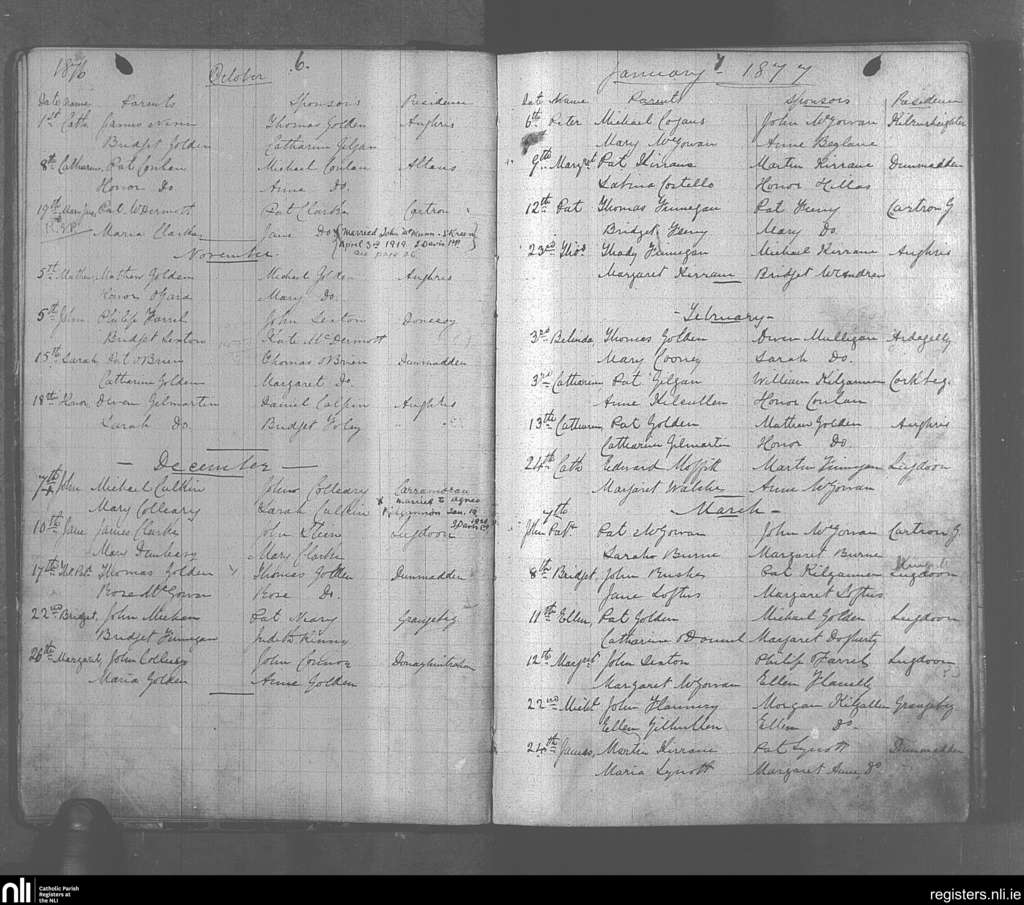 1876 October 6.
Date Name Parents Sponsors Residence
1st Cath James Thomas Golden Aughris
Bridget Golden Catharine Gilgan
8th Catharine Pat Conlan Michael Conlan Altans
Honor Do Anna Do.
19th Mary Jane Pat McDermott Pat Clarke Cartron
Maria Clarke Jane Do
Married John
April 3rd 1919
November
5th Mathew Mathew Golden Michael Golden Aughris
Honor O'Gara Mary Do.
5th John Philip Farrel John Sexton Donecoy
Bridget Sexton Kate McDermott
15th Sarah Pat O'Brien Thomas O'Brien Dunmadden
Catharine Golden Margaret Do
18th Honor Owen Gilmartin Daniel Calpin Aughris
Sarah Do Bridget Foley
December
7th John Michael Culkin John Colleary Carramoran
Mary Colleary Sarah Culkin
married to Agnes
10th Jane James Clarke John Lugdoon
Mary Dunleavy Mary Clarke
17th Thos Pat. Thomas Golden Thomas Golden Dunmadden
Rose McGowan Rose Do.
22nd Bridget John Mehan Pat Neary Grangebeg
Bridget Finnegan Judith Kinny
26th Margaret John Colleary John Connor Donaghintrahan
Maria Golden Anne Golden
January 1877 7
Date Name Parents Sponsors Residence
6th Peter Michael Cogans John McGowan Kilrusheighter
Mary McGowan Anne Beglane
9th Margret Pat Kirrane Martin Kirrane Dunmadden
Sabina Costello Honor Hillas
12th Pat Thomas Finnegan Pat Feeny Cartron G
Bridget Feeny Mary Do.
23rd Thos Thady Finnegan Michael Kirrane Aughris
Margaret Kirrane Bridget McAndrew
February
3rd Belinda Thomas Golden Owen Mulligan Ardagelly
Mary Cooney Sarah Do.
3rd Catharine Pat Gilgan William Kilgannon Corkbeg.
Anne Kilcullen Honor Conlan
13th Catharine Pat Golden Mathew Golden Aughris
Catharine Gilmartin Honor Do
24th Cath Edward Moffitt Martin Finnegan Lugdoon
Margaret Walshe Anne McGowan
March
7th
John Patk. Pat McGowan John McGowan Cartron G
Sarah Burne Margaret Burne
8th Bridget John Rushe Pat Kilgannon Lugdoon
Jane Loftus Margaret Loftus
11th Ellen Pat Golden Michael Golden Lugdoon
Catharine O'Donnel Margaret Dogherty
12th Margret John Sexton Philip O'Farrel Lugdoon
Margaret McGowan Ellen Flannelly
22nd Michl John Flannery Morgan Kilgallen Grangebeg
Ellen Gilhullen Ellen Do
24th James Martin Kirrane Pat Lynott Dunmadden
Maria Lynott Margaret Anne Do
nli Catholic Parish
Registers at
the NLI
registers.nli.ie